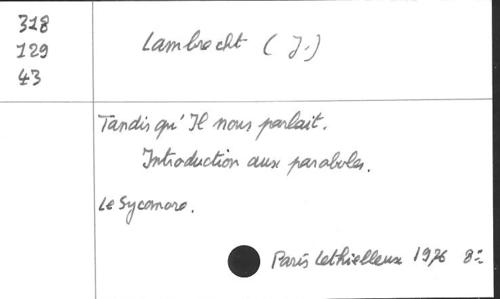 318
129
43
Lambrecht (J.)
Tandis qu'Il nous parlait.
Introduction aux paraboles.
Le Sycomore.
Paris Lethielleux 1976 8º